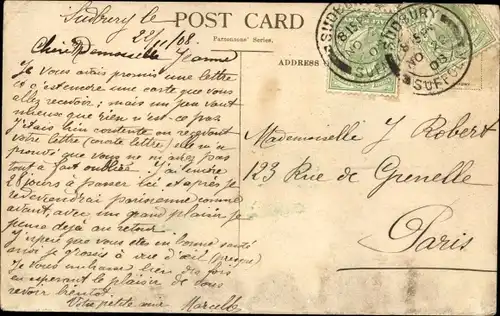 Sudbury le
22/11/08.
POST CARD
Parsonsons' Series.
ADDRESS
SUDBURY
NO 22
08
SUFFOLK
SUDBURY
NO 22
08
SUFFOLK
Chère Demoiselle Jeanne
Je vous avais promis une lettre
et c'est une carte que vous
allez recevoir; mais un peu vaut
mieux que rien n'est-ce pas.
J'étais bien contente en recevant
votre lettre (courte lettre) elle m'a
prouvé que vous ne m'aviez pas
tout à fait oubliée. J'ai encore
28 jours à passer ici et après je
redeviendrai parisienne comme
avant, avec un grand plaisir je
pense déjà au retour.
J'espère que vous êtes en bonne santé
moi je grossis à vue d'œil (presque)
Je vous embrasse bien des fois
en espérant le plaisir de vous
revoir bientôt.
Votre petite amie Marcelle
Mademoiselle J Robert
123 Rue de Grenelle
Paris